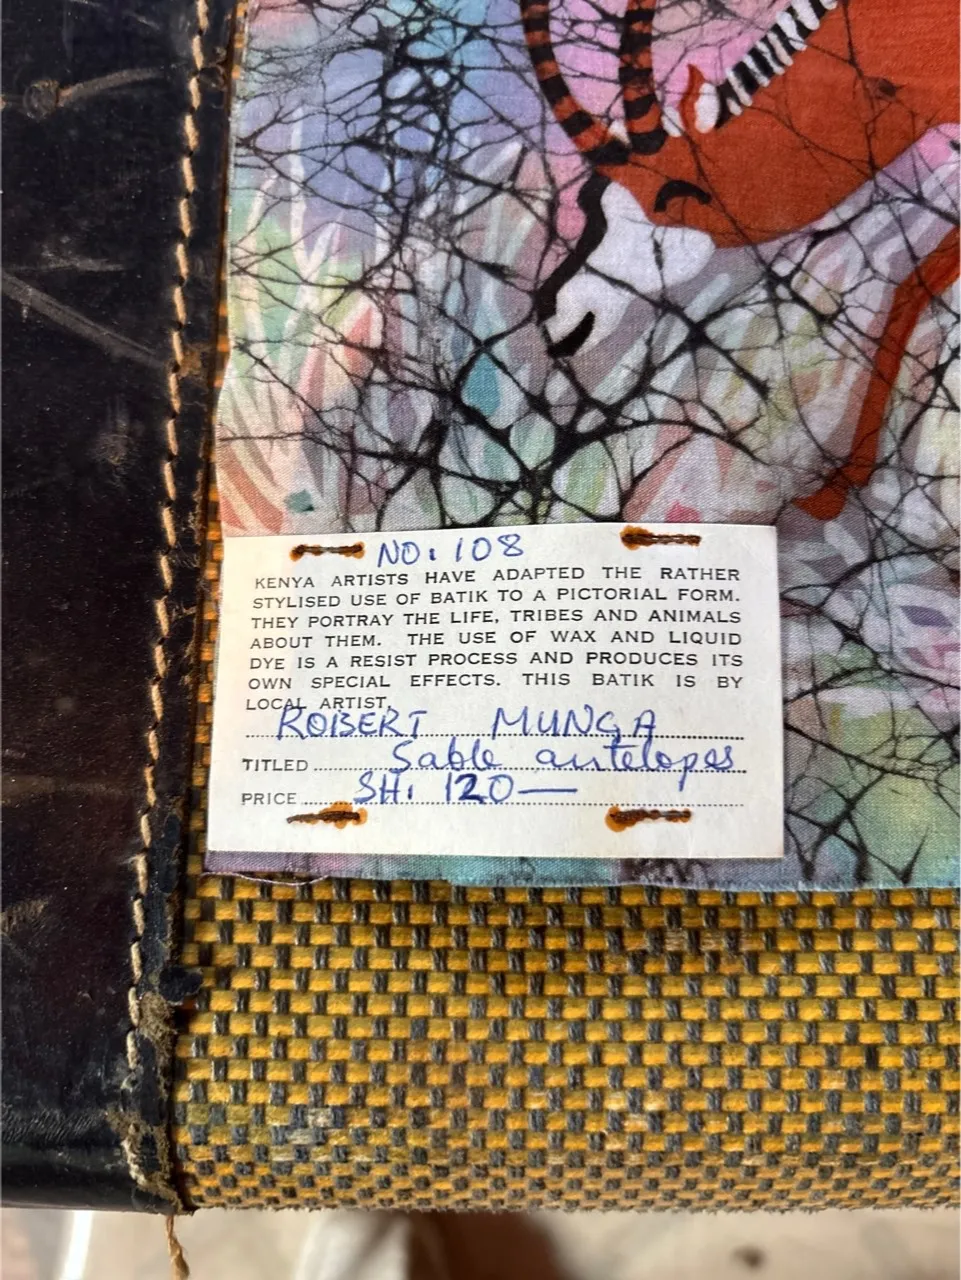 NO. 108
KENYA ARTISTS HAVE ADAPTED THE RATHER
STYLISED USE OF BATIK TO A PICTORIAL FORM.
THEY PORTRAY THE LIFE, TRIBES AND ANIMALS
ABOUT THEM. THE USE OF WAX AND LIQUID
DYE IS A RESIST PROCESS AND PRODUCES ITS
OWN SPECIAL EFFECTS. THIS BATIK IS BY
LOCAL ARTIST.
ROBERT MUNGA
TITLED Sable antelopes
PRICE SH. 120—